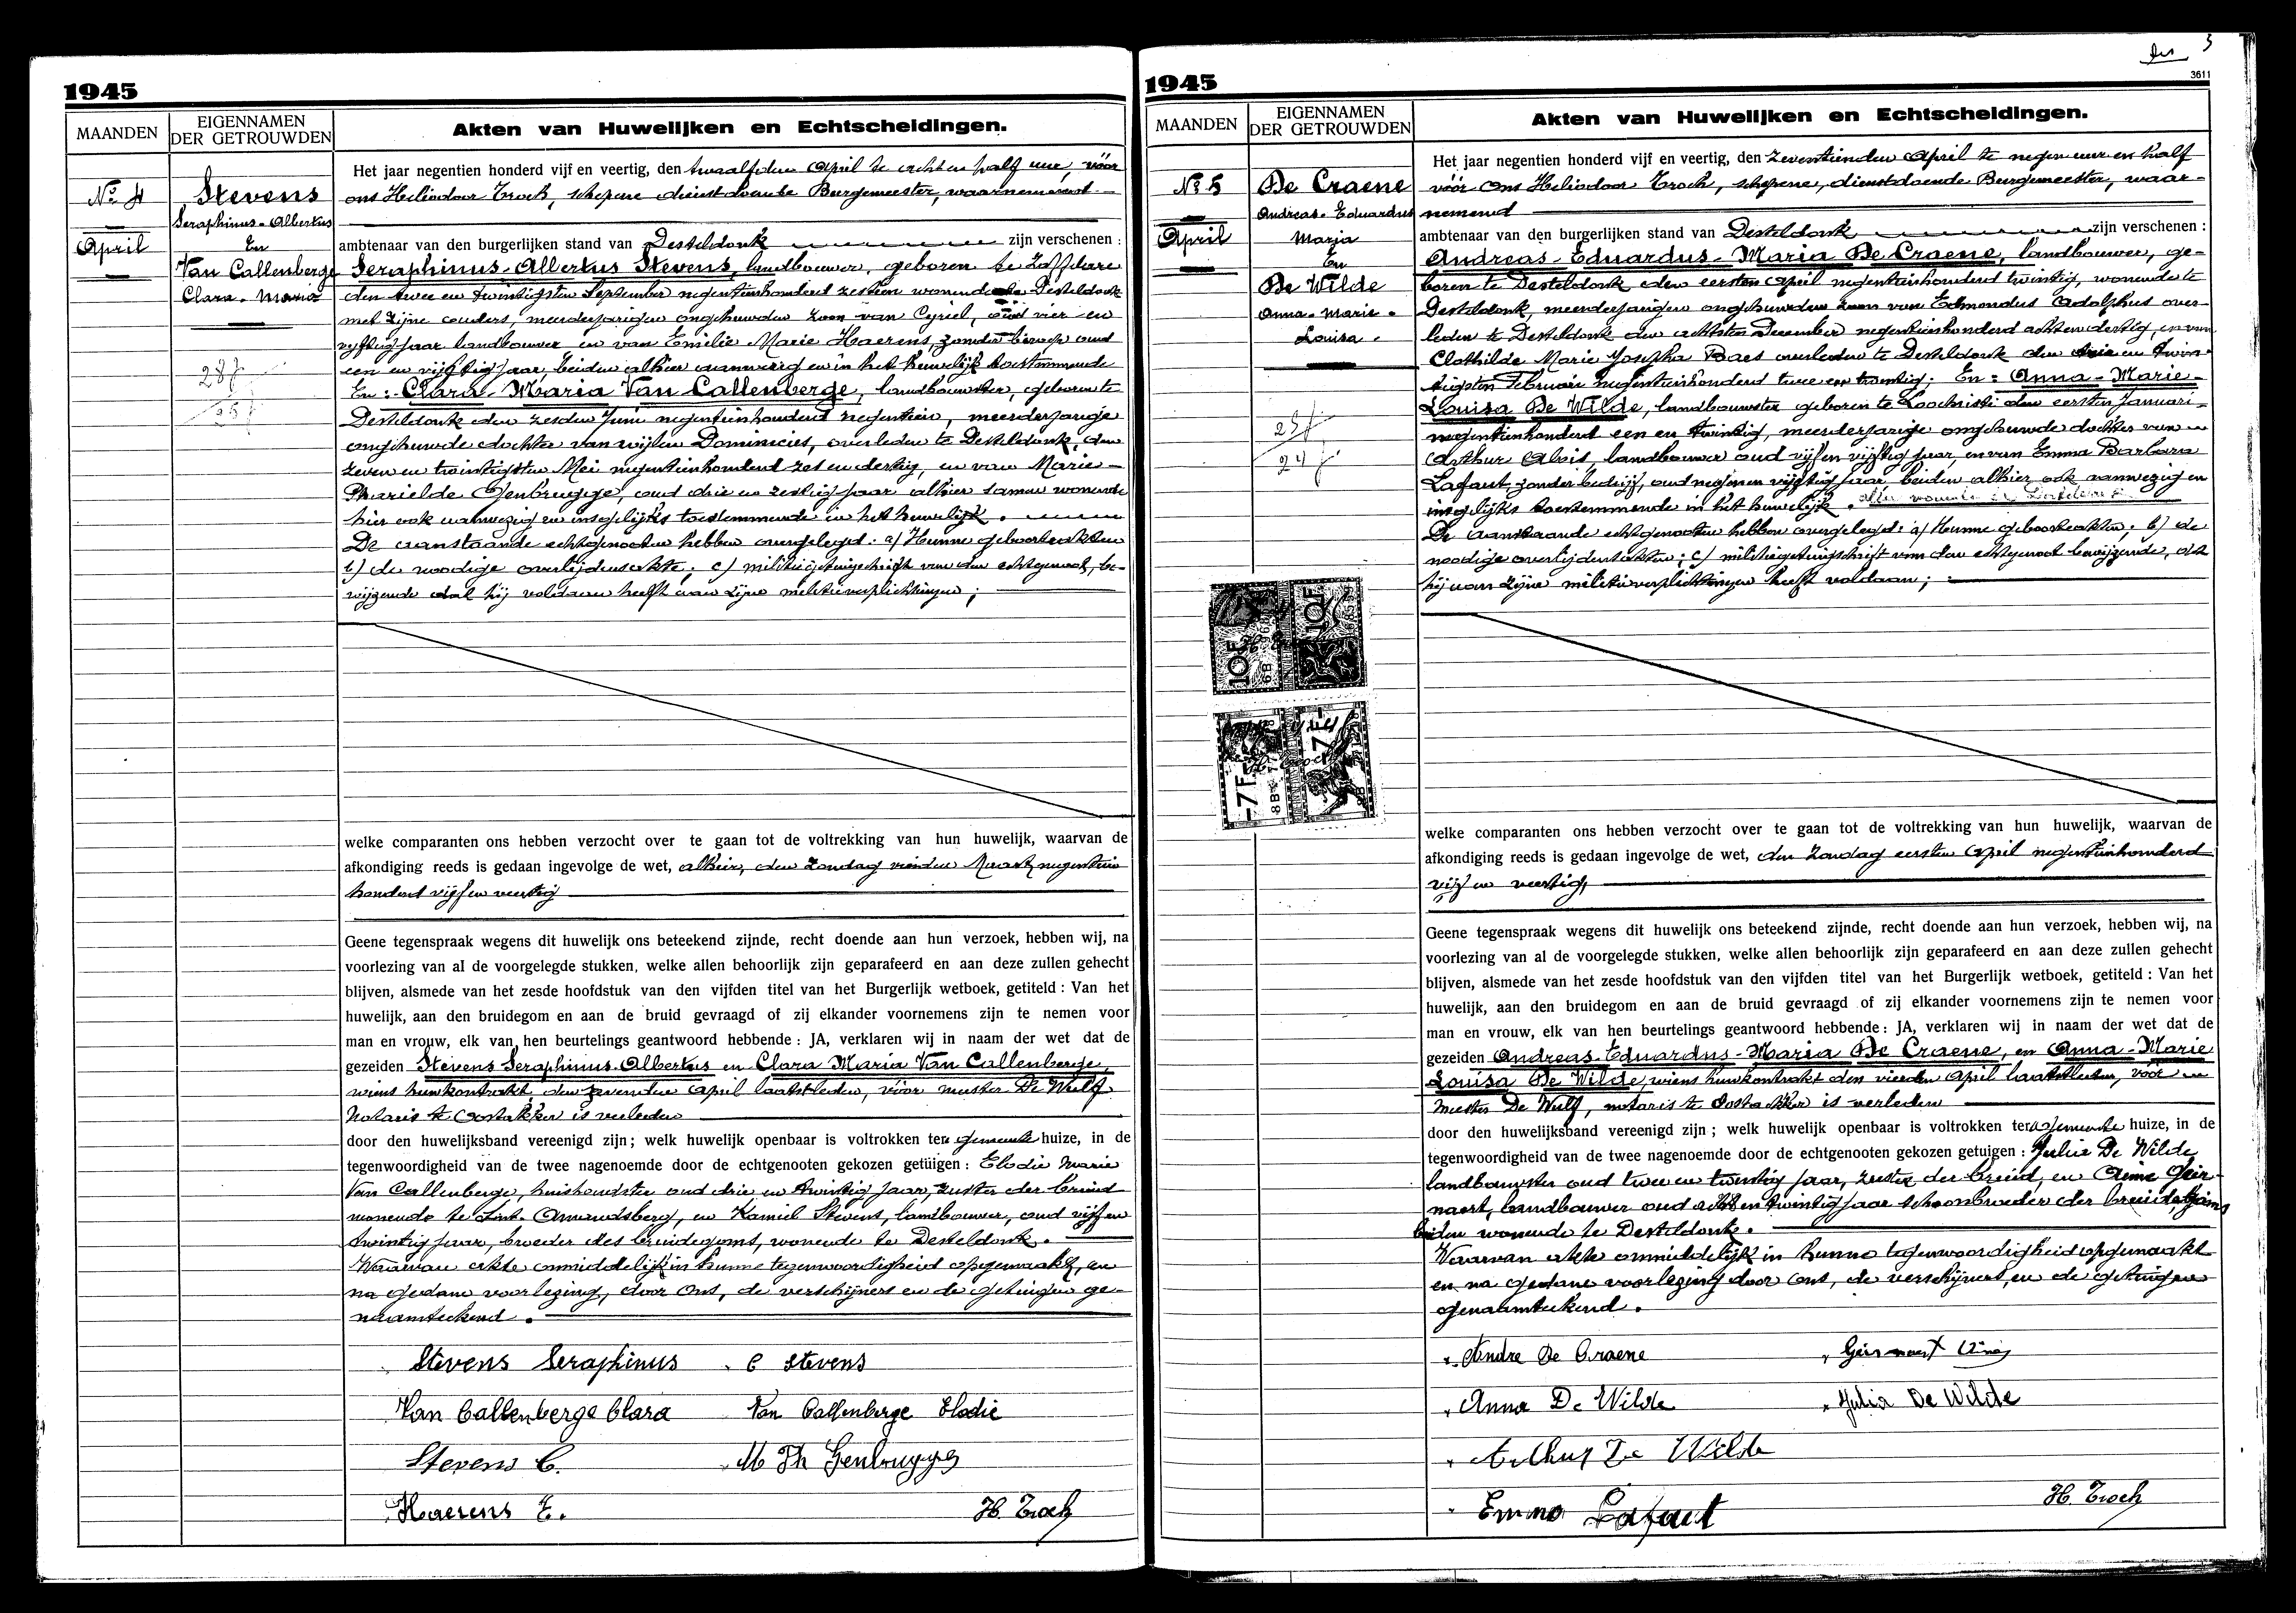 1945
MAANDEN
EIGENNAMEN
DER GETROUWDEN
Akten van Huwelijken en Echtscheidingen.
No 4
April
Stevens
Seraphinus-Albertus
En
Van Callenberge
Clara-Maria
28 j
25 j
Het jaar negentien honderd vijf en veertig, den twaalfden April te acht en half uur, vóór
ons Heliodoor Troch, schepene dienstdoende Burgemeester, waarnemend
ambtenaar van den burgerlijken stand van Desteldonk zijn verschenen :
Seraphinus-Albertus Stevens, landbouwer, geboren te Zaffelare
den twee en twintigsten September negentienhonderd zestien wonende te Desteldonk
met zijne ouders, meerderjarigen ongehuwden zoon van Cyriel, oud vier en
vijftig jaar landbouwer en van Emilie Marie Haerens zonder beroep oud
een en vijftig jaar, beiden alhier aanwezig en in het huwelijk toestemmende
En :- Clara-Maria Van Callenberge, landbouwster, geboren te
Desteldonk den zesden Juni negentienhonderd negentien, meerderjarige
ongehuwde dochter van wijlen Dominicies, overleden te Desteldonk, den
zeven en twintigsten Mei negentienhonderd zes en dertig, en van Marie-
Pharielde Genbrugge, oud drie en zestig jaar alhier samen wonende
hier ook aanwezig en insgelijks toestemmende in het huwelijk.
De aanstaande echtgenooten hebben overgelegd: a/ Hunne geboorteakten
b/ de noodige overlijdensakte; c/ militiegetuigschrift van den echtgenoot, be-
wijzende dat hij voldaan heeft aan zijne militieverplichtingen;
welke comparanten ons hebben verzocht over te gaan tot de voltrekking van hun huwelijk, waarvan de
afkondiging reeds is gedaan ingevolge de wet, alhier, den Zondag vierden Maart negentien
honderd vijf en veertig
Geene tegenspraak wegens dit huwelijk ons beteekend zijnde, recht doende aan hun verzoek, hebben wij, na
voorlezing van al de voorgelegde stukken, welke allen behoorlijk zijn geparafeerd en aan deze zullen gehecht
blijven, alsmede van het zesde hoofdstuk van den vijfden titel van het Burgerlijk wetboek, getiteld : Van het
huwelijk, aan den bruidegom en aan de bruid gevraagd of zij elkander voornemens zijn te nemen voor
man en vrouw, elk van hen beurtelings geantwoord hebbende : JA, verklaren wij in naam der wet dat de
gezeiden Stevens Seraphinus-Albertus en Clara Maria Van Callenberge,
wiens huwkontrakt, den zevenden April laatstleden, vóór meester De Wulf
Notaris te Oostakker is verleden
door den huwelijksband vereenigd zijn ; welk huwelijk openbaar is voltrokken ten gemeente huize, in de
tegenwoordigheid van de twee nagenoemde door de echtgenooten gekozen getuigen : Elodie Marie
Van Callenberge, huishoudster oud drie en twintig jaar, zuster der bruid
wonende te Sint-Amandsberg, en Kamiel Stevens, landbouwer, oud vijf en
twintig jaar, broeder des bruidegoms, wonende te Desteldonk.
Waarvan akte onmiddelijk in hunne tegenwoordigheid opgemaakt, en
na gedane voorlezing, door ons, de verschijners en de getuigen ge-
naamteekend.
Stevens Seraphinus C Stevens
Van Callenberge Clara Van Callenberge Elodie
Stevens C. M Th Genbrugge
Haerens E. H. Troch
3
3611
1945
MAANDEN
EIGENNAMEN
DER GETROUWDEN
Akten van Huwelijken en Echtscheidingen.
No 5
April
De Craene
Andreas-Eduardus
Maria
En
De Wilde
Anna-Marie-
Louisa.
25 j
24 j
10F
10F
7F
7F
Het jaar negentien honderd vijf en veertig, den zeventienden April te negen uur en half
vóór ons Heliodoor Troch, schepene, dienstdoende Burgemeester, waar-
nemend
ambtenaar van den burgerlijken stand van Desteldonk zijn verschenen :
Andreas-Eduardus-Maria De Craene, landbouwer, ge-
boren te Desteldonk den eersten April negentienhonderd twintig, wonende te
Desteldonk, meerderjarigen ongehuwden zoon van Edmondus Adolphus over-
leden te Desteldonk den achtsten December negentienhonderd achtendertig, en van
Clothilde Marie Josepha Baes overleden te Desteldonk den drie en twin-
tigsten Februari negentienhonderd twee en twintig; En :- Anna-Marie-
Louisa De Wilde, landbouwster geboren te Loochristi den eersten Januari-
negentienhonderd een en twintig, meerderjarige ongehuwde dochter van
Arthur Alois, landbouwer oud vijf en vijftig jaar, en van Emma Barbara
Lafaut, zonder bedrijf, oud negen en vijftig jaar, beiden alhier ook aanwezig en
insgelijks toestemmende in het huwelijk.
De aanstaande echtgenooten hebben overgelegd: a/ Hunne geboorteakten; b/ de
noodige overlijdensakten; c/ militiegetuigschrift van den echtgenoot bewijzende, dat
hij aan zijne militieverplichtingen heeft voldaan;
welke comparanten ons hebben verzocht over te gaan tot de voltrekking van hun huwelijk, waarvan de
afkondiging reeds is gedaan ingevolge de wet, den Zondag eersten April negentienhonderd
vijf en veertig,
Geene tegenspraak wegens dit huwelijk ons beteekend zijnde, recht doende aan hun verzoek, hebben wij, na
voorlezing van al de voorgelegde stukken, welke allen behoorlijk zijn geparafeerd en aan deze zullen gehecht
blijven, alsmede van het zesde hoofdstuk van den vijfden titel van het Burgerlijk wetboek, getiteld : Van het
huwelijk, aan den bruidegom en aan de bruid gevraagd of zij elkander voornemens zijn te nemen voor
man en vrouw, elk van hen beurtelings geantwoord hebbende : JA, verklaren wij in naam der wet dat de
gezeiden Andreas-Eduardus-Maria De Craene, en Anna-Marie
Louisa De Wilde, wiens huwkontrakt den vierden April laatstleden, vóór
meester De Wulf, notaris te Oostakker is verleden
door den huwelijksband vereenigd zijn ; welk huwelijk openbaar is voltrokken ten gemeente huize, in de
tegenwoordigheid van de twee nagenoemde door de echtgenooten gekozen getuigen : Julia De Wilde
landbouwster oud twee en twintig jaar, zuster der bruid, en Aimé Geir-
naert, landbouwer oud acht en twintig jaar schoonbroeder der bruidegoms
beiden wonende te Desteldonk.
Waarvan akte onmiddelijk in hunne tegenwoordigheid opgemaakt
en na gedane voorlezing door ons, de verschijners en de getuigen
genaamteekend.
Andre De Craene Geirnaert Aimé
Anna De Wilde Julia De Wilde
Arthur De Wilde
Emma Lafaut H. Troch